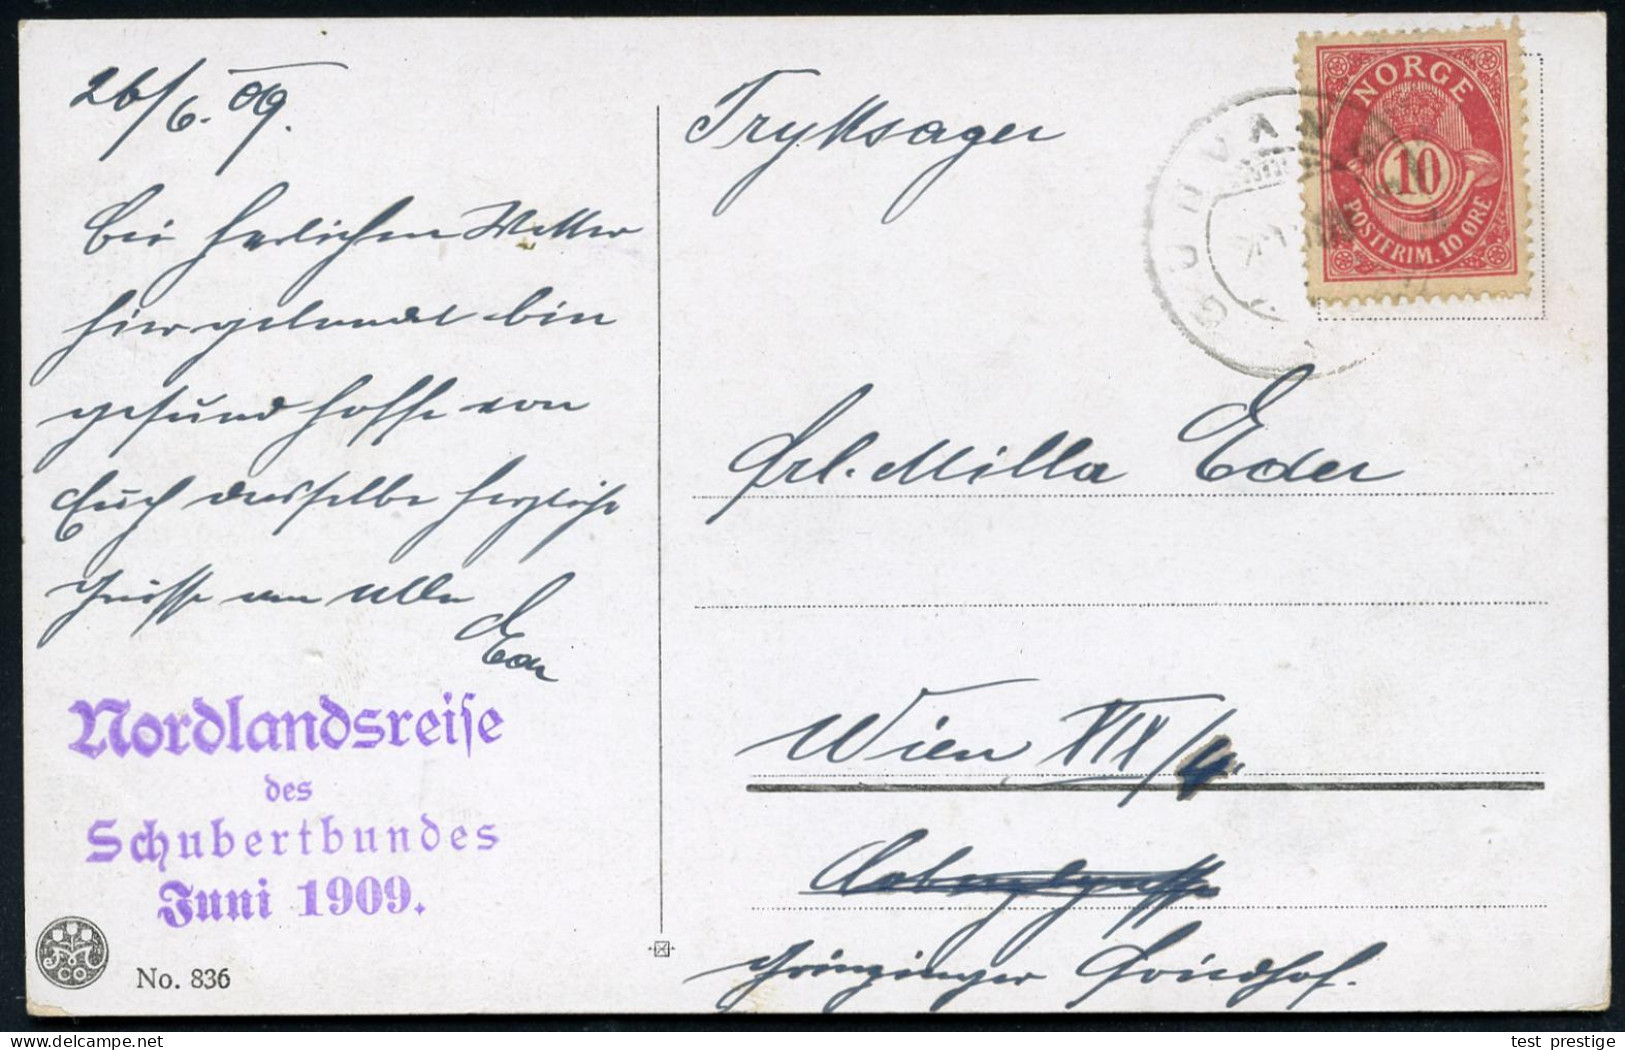 26/6. 09.
Bei herlichen Wetter
hier gelandet bin
gesund hoffe von
Euch dasselbe herzliche
Grüsse an alle
Eder
Nordlandsreise
des
Schubertbundes
Juni 1909.
No. 836
Tryksager
GUDVANGEN
NORGE
10
POSTFRIM. 10 ØRE
Frl. Milla Eder
Wien XIX/4.
Grinzinger Friedhof.
test prestige